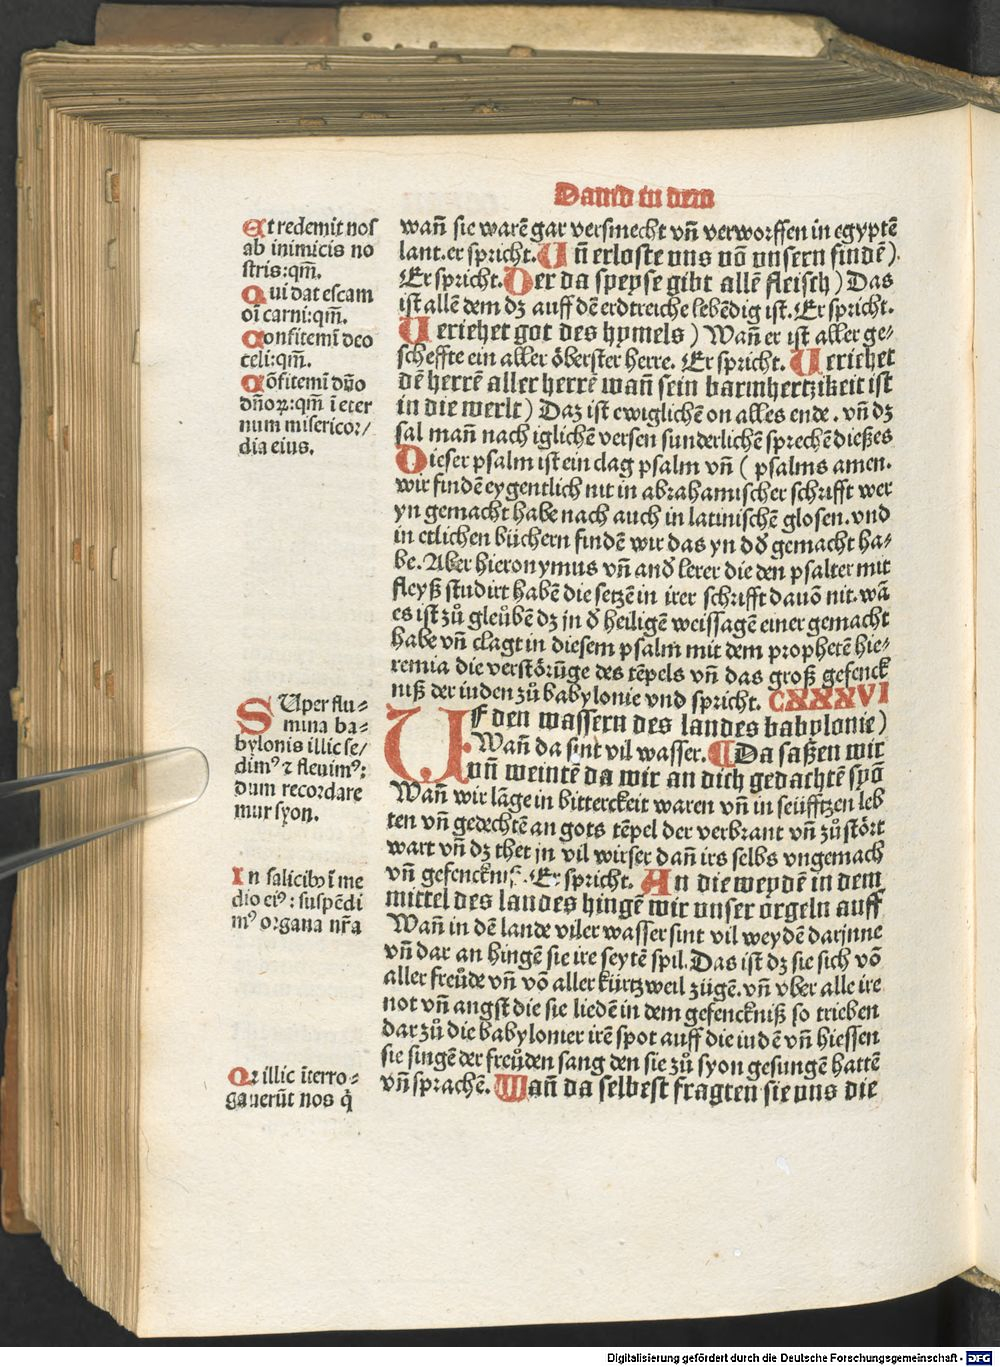 Dauid in dem
Et redemit nos
ab inimicis no
stris:qm̄.
Qui dat escam
oī carni:qm̄.
Confitemī deo
celi:qm̄.
Cōfitemī dn̄o
dn̄oꝝ:qm̄ ī eter
num misericor/
dia eius.
wan̄ sie warē gar versmecht vn̄ verworffen in egyptē
lant.er spricht. Un̄ erloste vns vō vnsern findē).
Er spricht. Der da speyse gibt allē fleisch) Das
ist allē dem dz auff dē erdtreiche lebēdig ist. Er spricht.
Veriehet got des hymels) Wan̄ er ist aller ge⸗
scheffte ein aller öberster herre. Er spricht. Veriehet
dē herrē aller herrē wan̄ sein barmhertzikeit ist
in die werlt) Daz ist ewiglichē on alles ende. vn̄ dz
sal man̄ nach iglichē versen sunderlichē sprechē dießes
Dieser psalm ist ein clag psalm vn̄ ( psalms amen.
wir findē eygentlich nit in abrahamischer schrifft wer
yn gemacht habe nach auch in latinischē glosen. vnd
in etlichen büchern findē wir das yn dð gemacht ha⸗
be. Aber hieronymus vn̄ anð lerer die den psalter mit
fleyß studirt habē die setzē in irer schrifft dauō nit. wā
es ist zů gleůbē dz jn ð heiligē weissagē einer gemacht
habe vn̄ clagt in diesem psalm mit dem prophetē hie⸗
remia die verstörūge des tēpels vn̄ das groß gefenck
niß der iuden zů babylonie vnd spricht. CXXXVI
SUper flu⸗
mina ba⸗
bylonis illic se/
dimꝰ ⁊ fleuimꝰ:
dum recordare
mur syon.
UF den wassern des landes babylonie)
Wan̄ da sint vil wasser. ¶ Da saßen wir
vn̄ weintē da wir an dich gedachtē syō
Wan̄ wir lāge in bitterckeit waren vn̄ in seüfftzen leb
ten vn̄ gedechtē an gots tēpel der verbrant vn̄ zůstört
wart vn̄ dz thet jn vil wirser dan̄ irs selbs vngemach
vn̄ gefenckniß. Er spricht. An die weydē in dem
mittel des landes hingē wir vnser orgeln auff
Wan̄ in dē lande viler wasser sint vil weydē darjnne
vn̄ dar an hingē sie ire seytē spil. Das ist dz sie sich vō
aller freůde vn̄ vō aller kürtzweil zügē. vn̄ vber alle ire
not vn̄ angst die sie liedē in dem gefenckniß so trieben
dar zů die babylonier irē spot auff die iudē vn̄ hiessen
sie singē der freůden sang den sie zů syon gesungē hattē
vn̄ sprachē. Wan̄ da selbest fragten sie vns die
In salicibꝰ ī me
dio eiꝰ: suspēdi
mꝰ organa nr̄a
Qr illic īterro⸗
gauerūt nos q̄
Digitalisierung gefördert durch die Deutsche Forschungsgemeinschaft - DFG